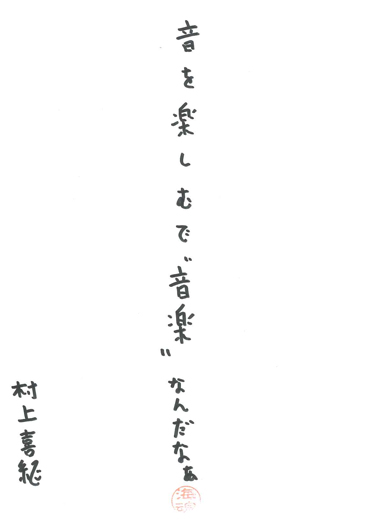 音を楽しむで〝音楽〟なんだなぁ
村上喜